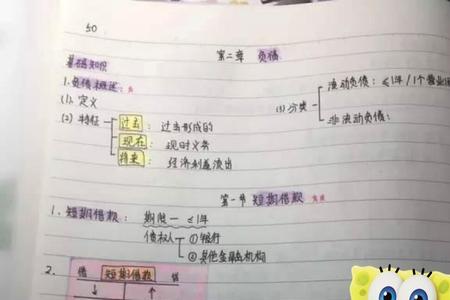 50
第二章 负债
基础知识
1.负债概述:
(1).定义
(2)特征
过去: 过去形成的
现在: 现时义务
将来: 经济利益流出
(3)分类
流动负债: ≤1年/1个营业
非流动负债:
第一节 短期借款
1.短期借款: 期限— ≤1年
债权人 ①银行
②其他金融机构
2.
借 短期借款 贷